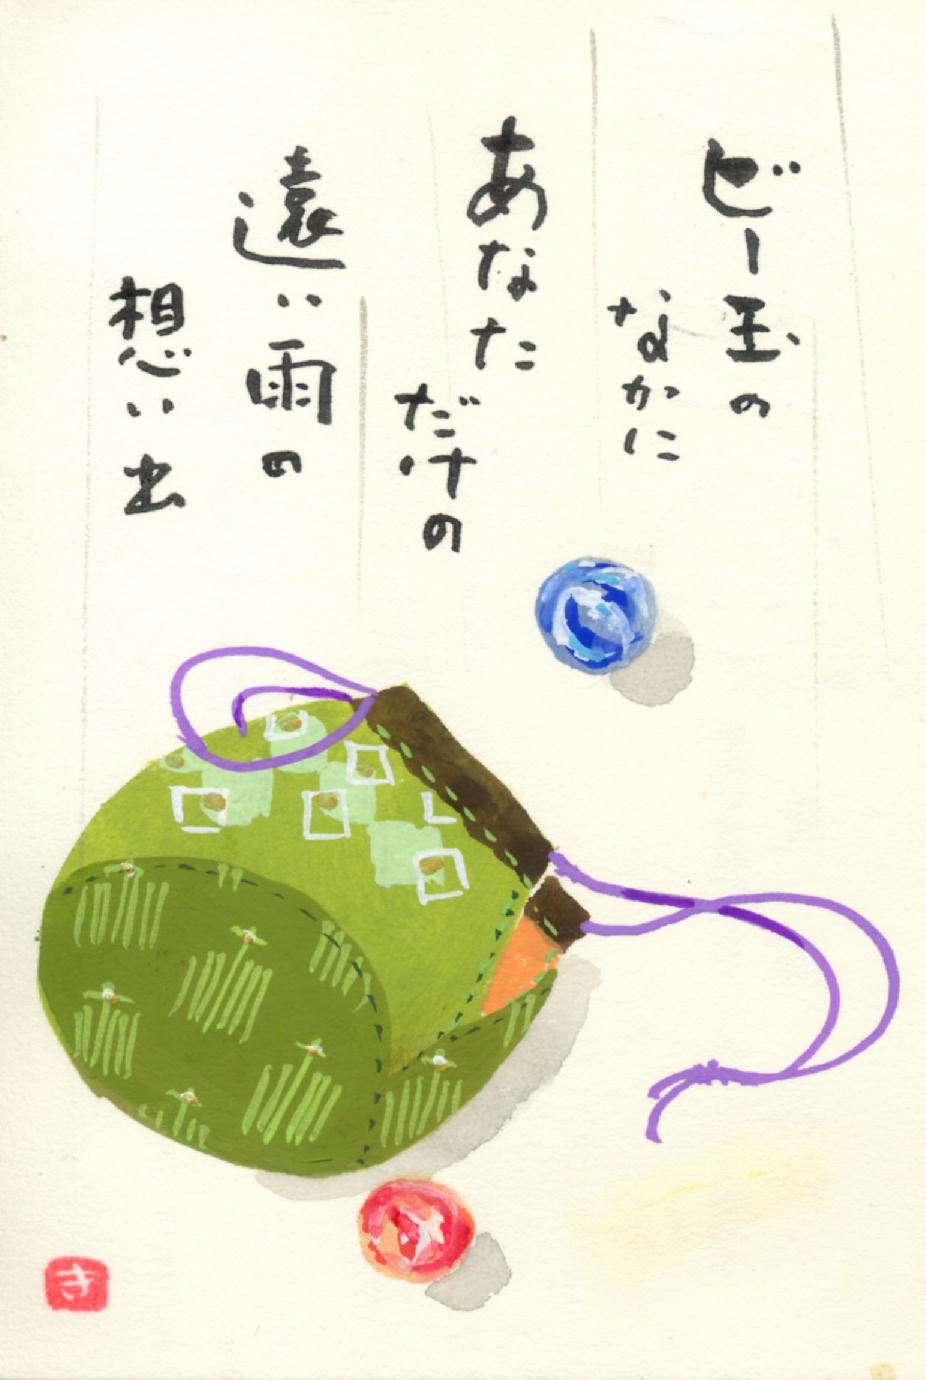 ビー玉の
なかに
あなた
だけの
遠い雨の
想い出
き